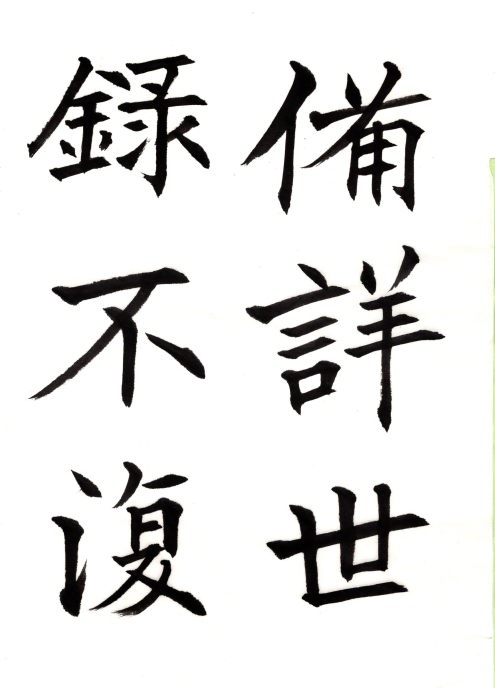 備詳世
録不復